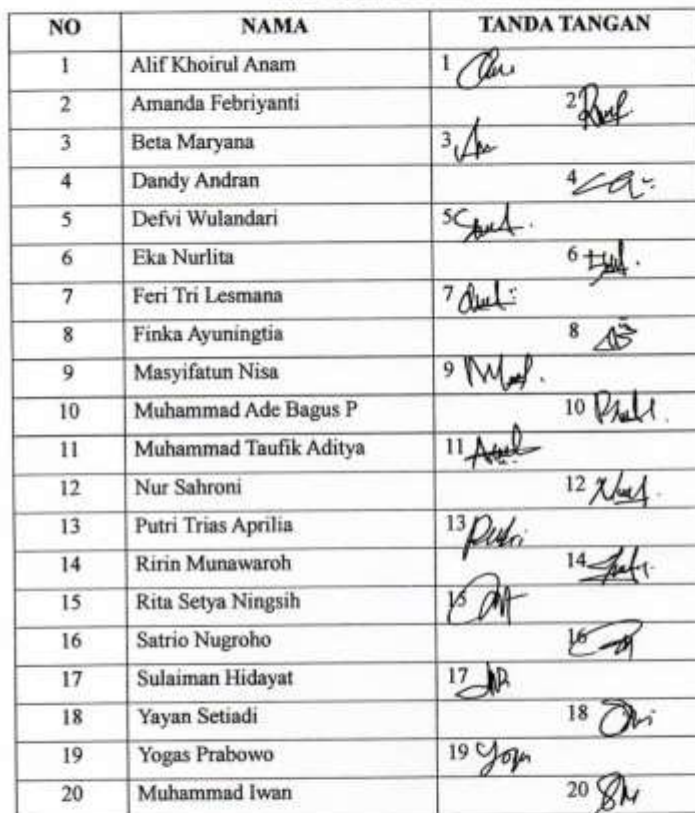 NO NAMA TANDA TANGAN
1 Alif Khoirul Anam 1
2 Amanda Febriyanti 2
3 Beta Maryana 3
4 Dandy Andran 4
5 Defvi Wulandari 5
6 Eka Nurlita 6
7 Feri Tri Lesmana 7
8 Finka Ayuningtia 8
9 Masyifatun Nisa 9
10 Muhammad Ade Bagus P 10
11 Muhammad Taufik Aditya 11
12 Nur Sahroni 12
13 Putri Trias Aprilia 13 Putri
14 Ririn Munawaroh 14
15 Rita Setya Ningsih 15
16 Satrio Nugroho 16
17 Sulaiman Hidayat 17
18 Yayan Setiadi 18
19 Yogas Prabowo 19
20 Muhammad Iwan 20